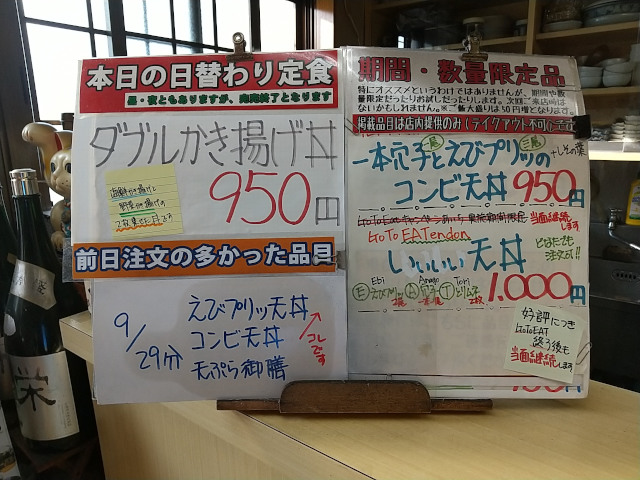 本日の日替わり定食
品・夜ともありますが、完売終了となります
ダブルかき揚げ丼
海鮮かき揚げと
野菜かき揚げの
2枚乗せた丼です
950円
前日注文の多かった品目
9/29分
えびプリッ天丼
コンビ天丼
天ぷら御膳
コレです
期間・数量限定品
特にオススメというわけではありませんが、期間や数
量限定だったりお試しだったりします。次回ご来店時は
ないかもしれません。※ご飯大盛りは10円増となります。
掲載品目は店内提供のみ(テイクアウト不可)です
一本穴子とえびプリッの
+しその葉
コンビ天丼 950円
当面継続します
GoTo EATendon
いいいい天丼
どなたでも
注文可!!
Ebi
Anago
Tori
1.000円
好評につき
GoToEAT
終了後も
当面継続します
栄